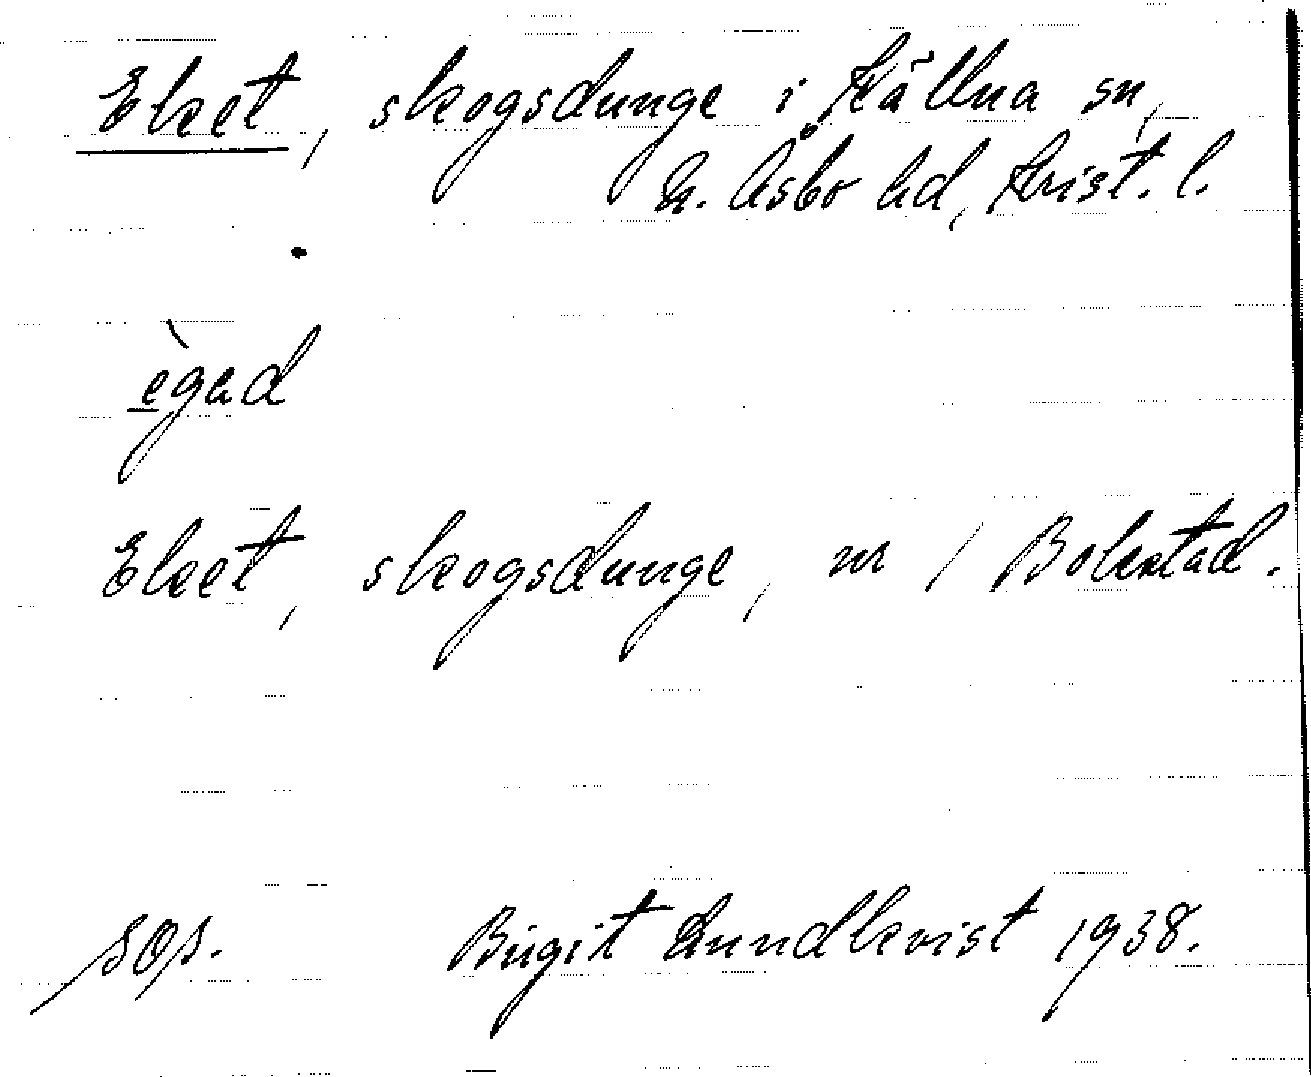 Eket, skogsdunge i Källna sn,
N. Åsbo hd, Krist. l.
ègəd
Eket, skogsdunge, nr 1 Bokstad.
SOÅ. Birgit Lundkvist 1938.